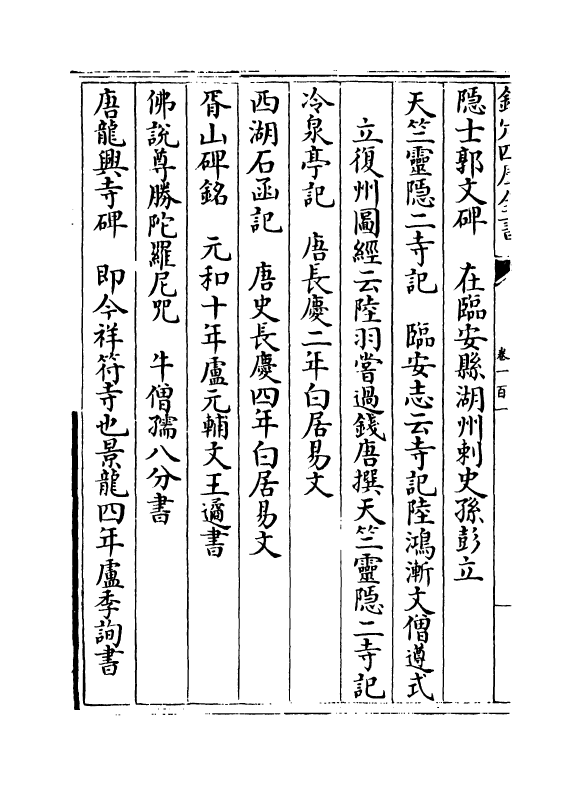 欽定四庫全書
卷一百一
隠士郭文碑　在臨安縣湖州刺史孫彭立
天竺靈隠二寺記　臨安志云寺記陸鴻漸文僧遵式
立復州圖經云陸羽嘗過錢唐撰天竺靈隠二寺記
冷泉亭記　唐長慶二年白居易文
西湖石函記　唐史長慶四年白居易文
胥山碑銘　元和十年盧元輔文王遹書
佛說尊勝陀羅尼咒　牛僧孺八分書
唐龍興寺碑　即今祥符寺也景龍四年盧季詢書